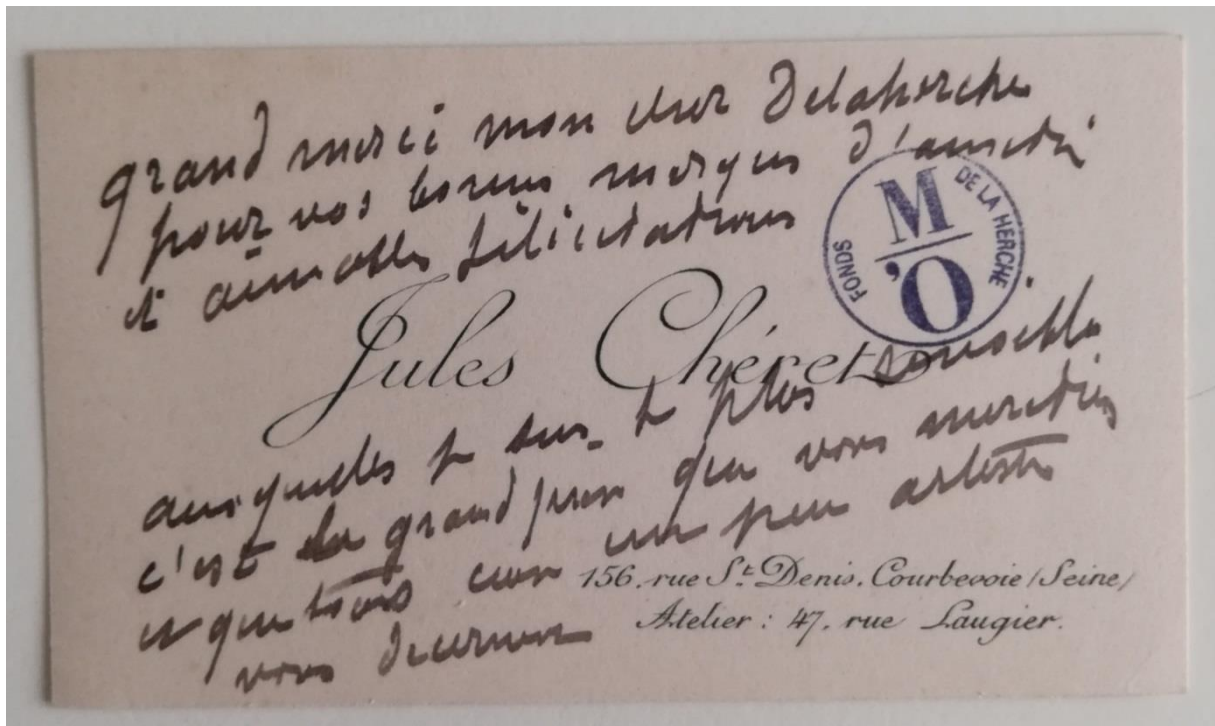 grand merci mon cher Delaherche
pour vos bonnes marques d'amitié
et aimables félicitations
M
O'
FONDS DE LA HERCHE
Jules Chéret
auxquelles je suis le plus sensible
c'est le grand prix que vous méritiez
et que tous un peu artiste
vous décernent
156, rue St. Denis. Courbevoie (Seine)
Atelier : 47, rue Laugier.